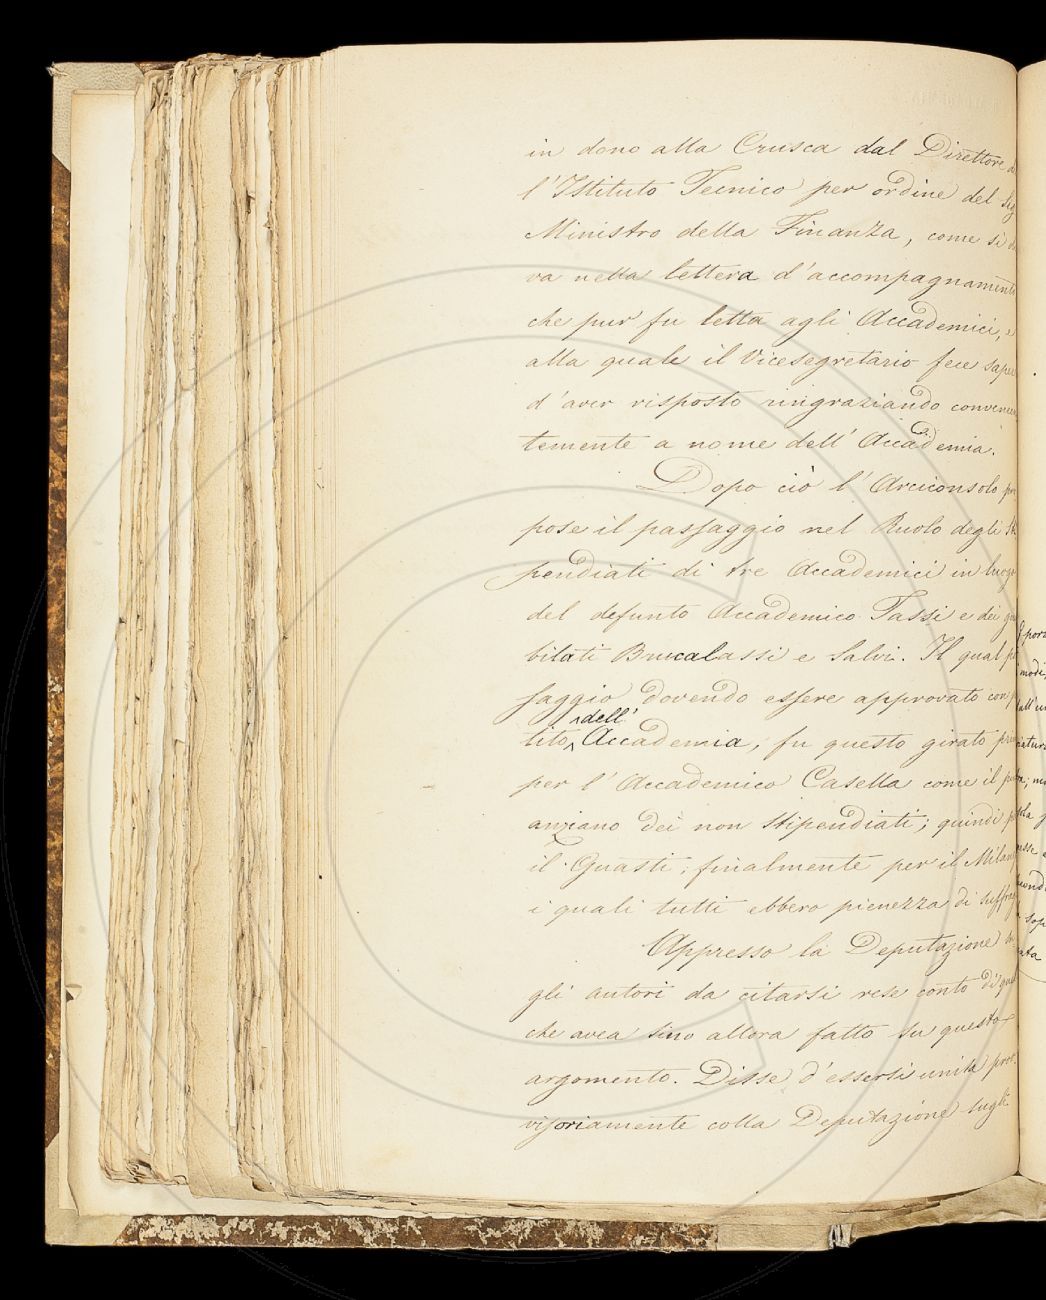 in dono alla Crusca dal Direttore
l'Istituto Tecnico per ordine del Sig
Ministro della Finanza, come si
va nella lettera d'accompagnamento
che pur fu letta agli Accademici, e
alla quale il Vicesegretario fece sape
d'aver risposto ringraziando convenien
temente a nome dell'Accademia.
Dopo ciò l'Arciconsolo pro
pose il passaggio nel Ruolo degli Sti
pendiati di tre Accademici in luogo
del defunto Accademico Tassi e dei giu
bilati Brucalassi e Salvi. Il qual pas
saggio dovendo essere approvato con par
dell'
tito Accademia, fu questo girato pri
per l'Accademico Casella come il più
anziano dei non stipendiati; quindi per
il Guasti; finalmente per il Milane
i quali tutti ebbero pienezza di suffrag
Appresso la Deputazione
gli autori da citarsi rese conto di quel
che avea sino allora fatto su questo
argomento. Disse d'essersi unita prov
visoriamente colla Deputazione sugli